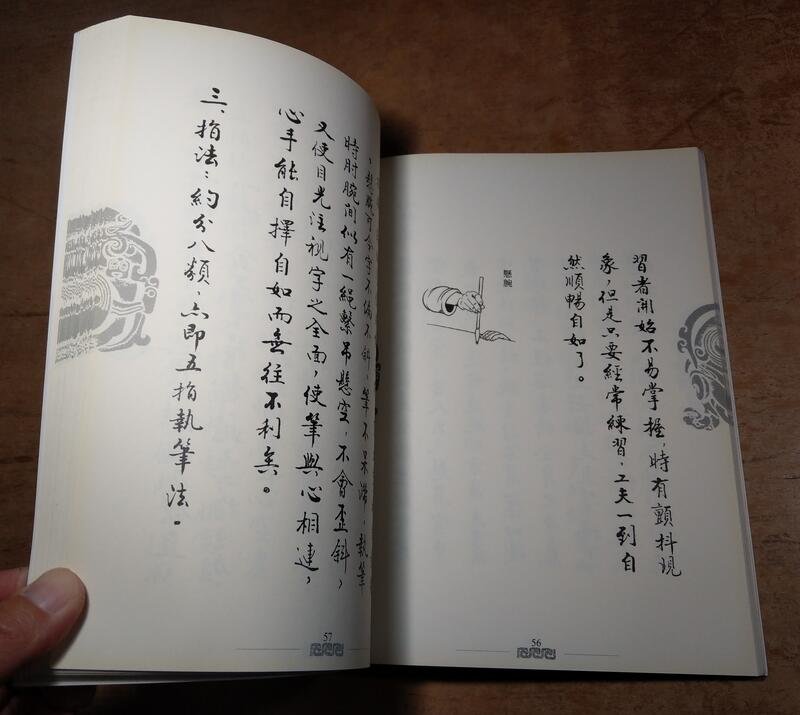 習者開始不易掌握，時有顫抖現
象，但是只要經常練習，工夫一到自
然順暢自如了。
懸腕
56
字不偏不斜，筆不呆滯，執筆
時肘腕間似有一繩繫吊懸空，不會歪斜，
又使目光注視字之全面，使筆與心相連，
心手能自擇自如而無往不利矣。
三、指法：約分八類，亦即五指執筆法。
57